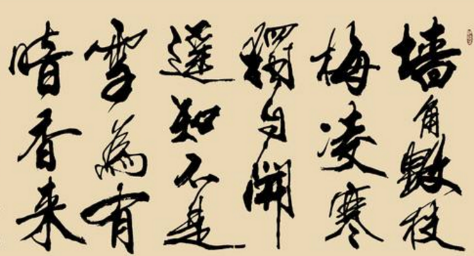 墙角数枝
梅凌寒
獨自開
遥知不是
雪為有
暗香来